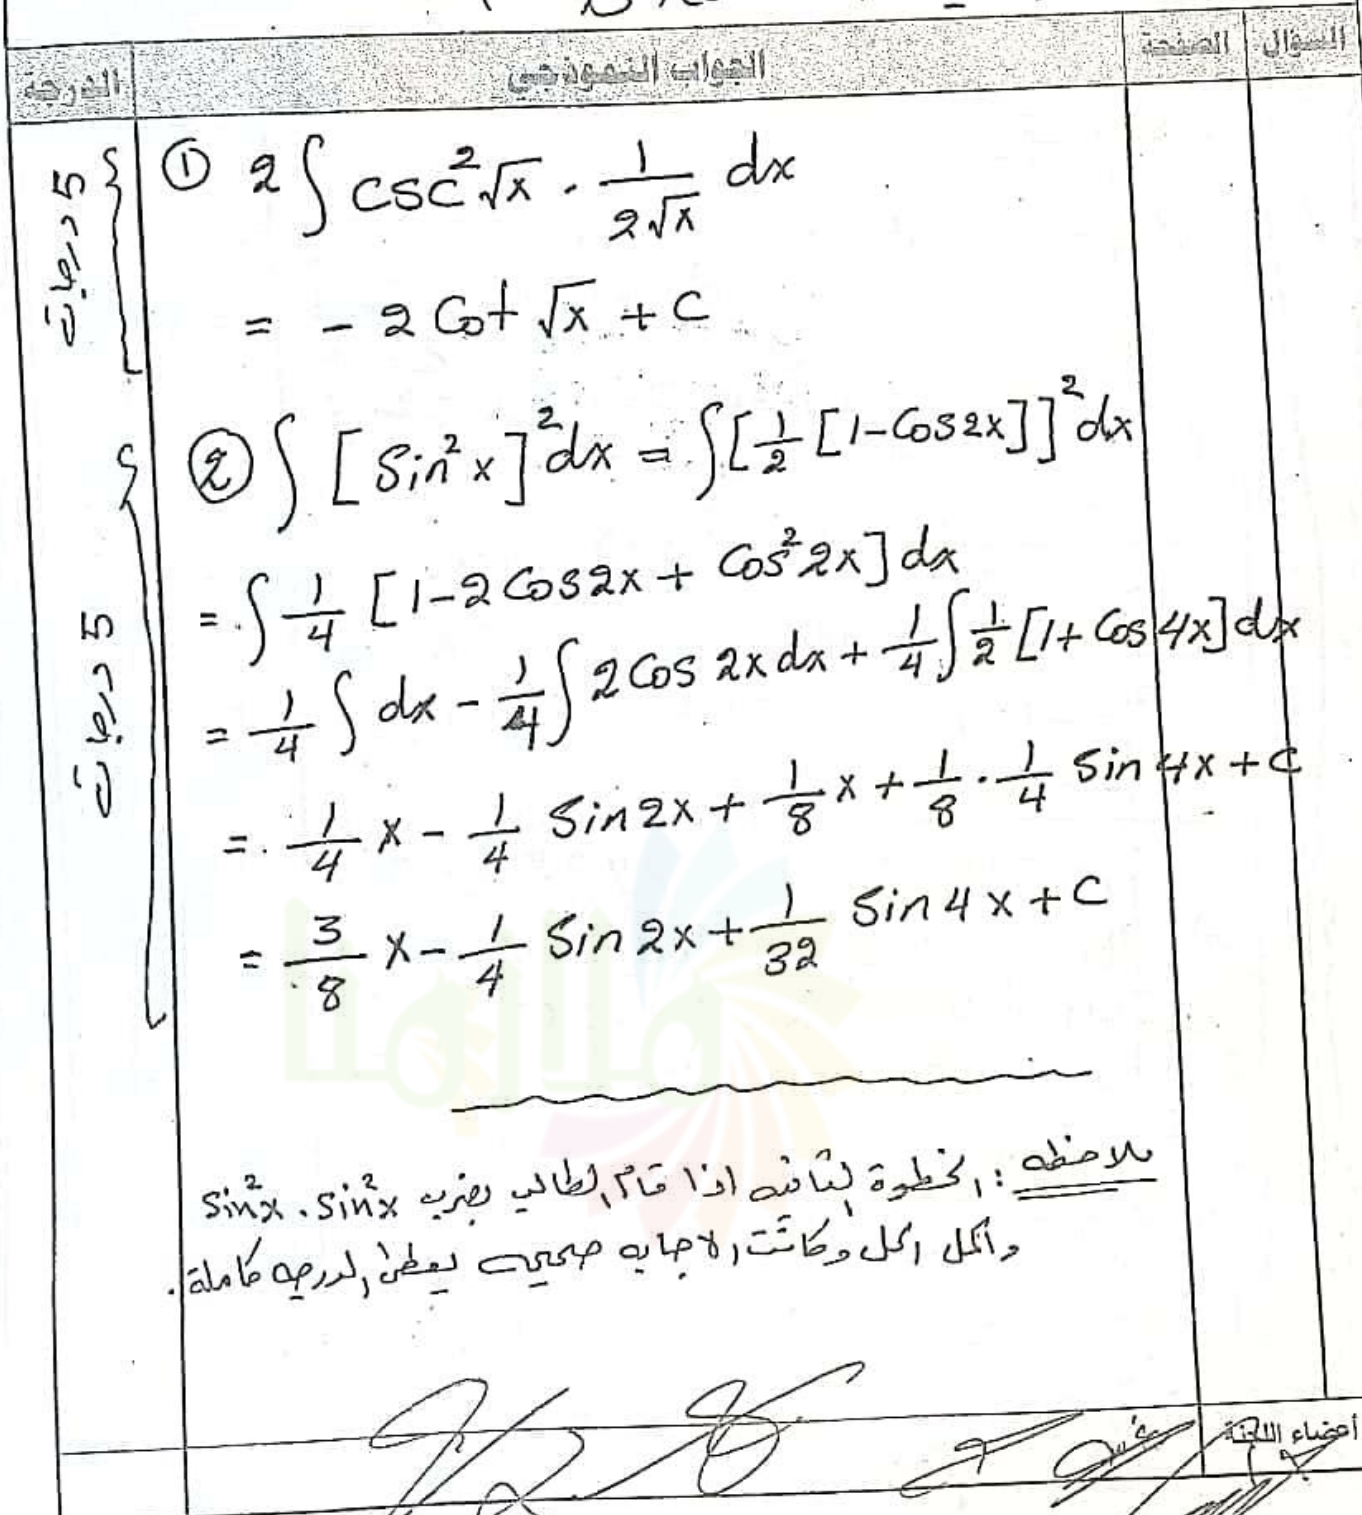 السؤال الصفحة الجواب النموذجي الدرجة
① 2 ∫ csc²√x · 1/(2√x) dx
5 درجات
= - 2 Cot √x + C
② ∫ [Sin²x]² dx = ∫ [1/2 [1-Cos2x]]² dx
= ∫ 1/4 [1-2Cos2x + Cos²2x] dx
5 درجات
= 1/4 ∫ dx - 1/4 ∫ 2Cos 2x dx + 1/4 ∫ 1/2 [1+ Cos 4x] dx
= 1/4 x - 1/4 Sin2x + 1/8 x + 1/8 · 1/4 Sin 4x + C
= 3/8 x - 1/4 Sin 2x + 1/32 Sin 4x + C
ملاحظه : الخطوة الثانيه اذا قام الطالب بضرب Sin²x . Sin²x
واكمل الحل وكانت الاجابه صحيحه يعطى الدرجه كاملة .
أعضاء اللجنة
ملازمنا